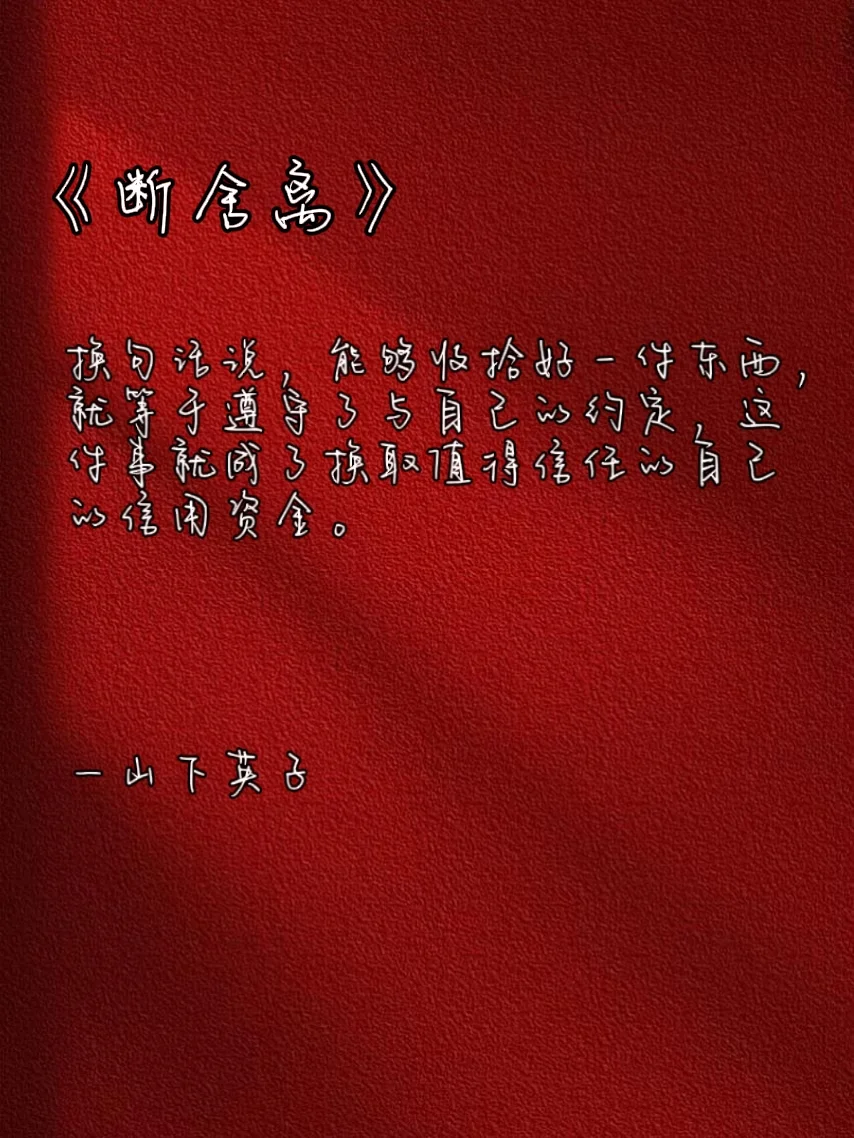 《断舍离》
换句话说，能够收拾好一件东西，
就等于遵守了与自己的约定，这
件事就成了换取值得信任的自己
的信用资金。
一山下英子